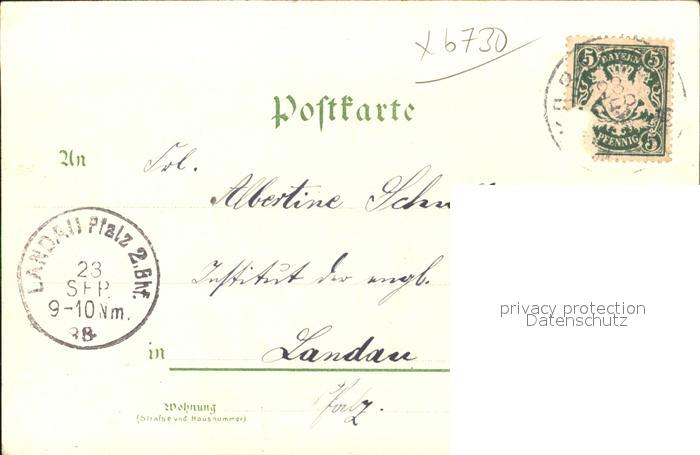 x 6730
5 BAYERN 5
PFENNIG 5
Postkarte
An Frl.
Albertine
Institut der engl.
LANDAU Pfalz 2.Bhf.
23
SEP.
9-10 Nm.
98
privacy protection
Datenschutz
in Landau
Pfalz.
Wohnung
(Strafse und Hausnummer)